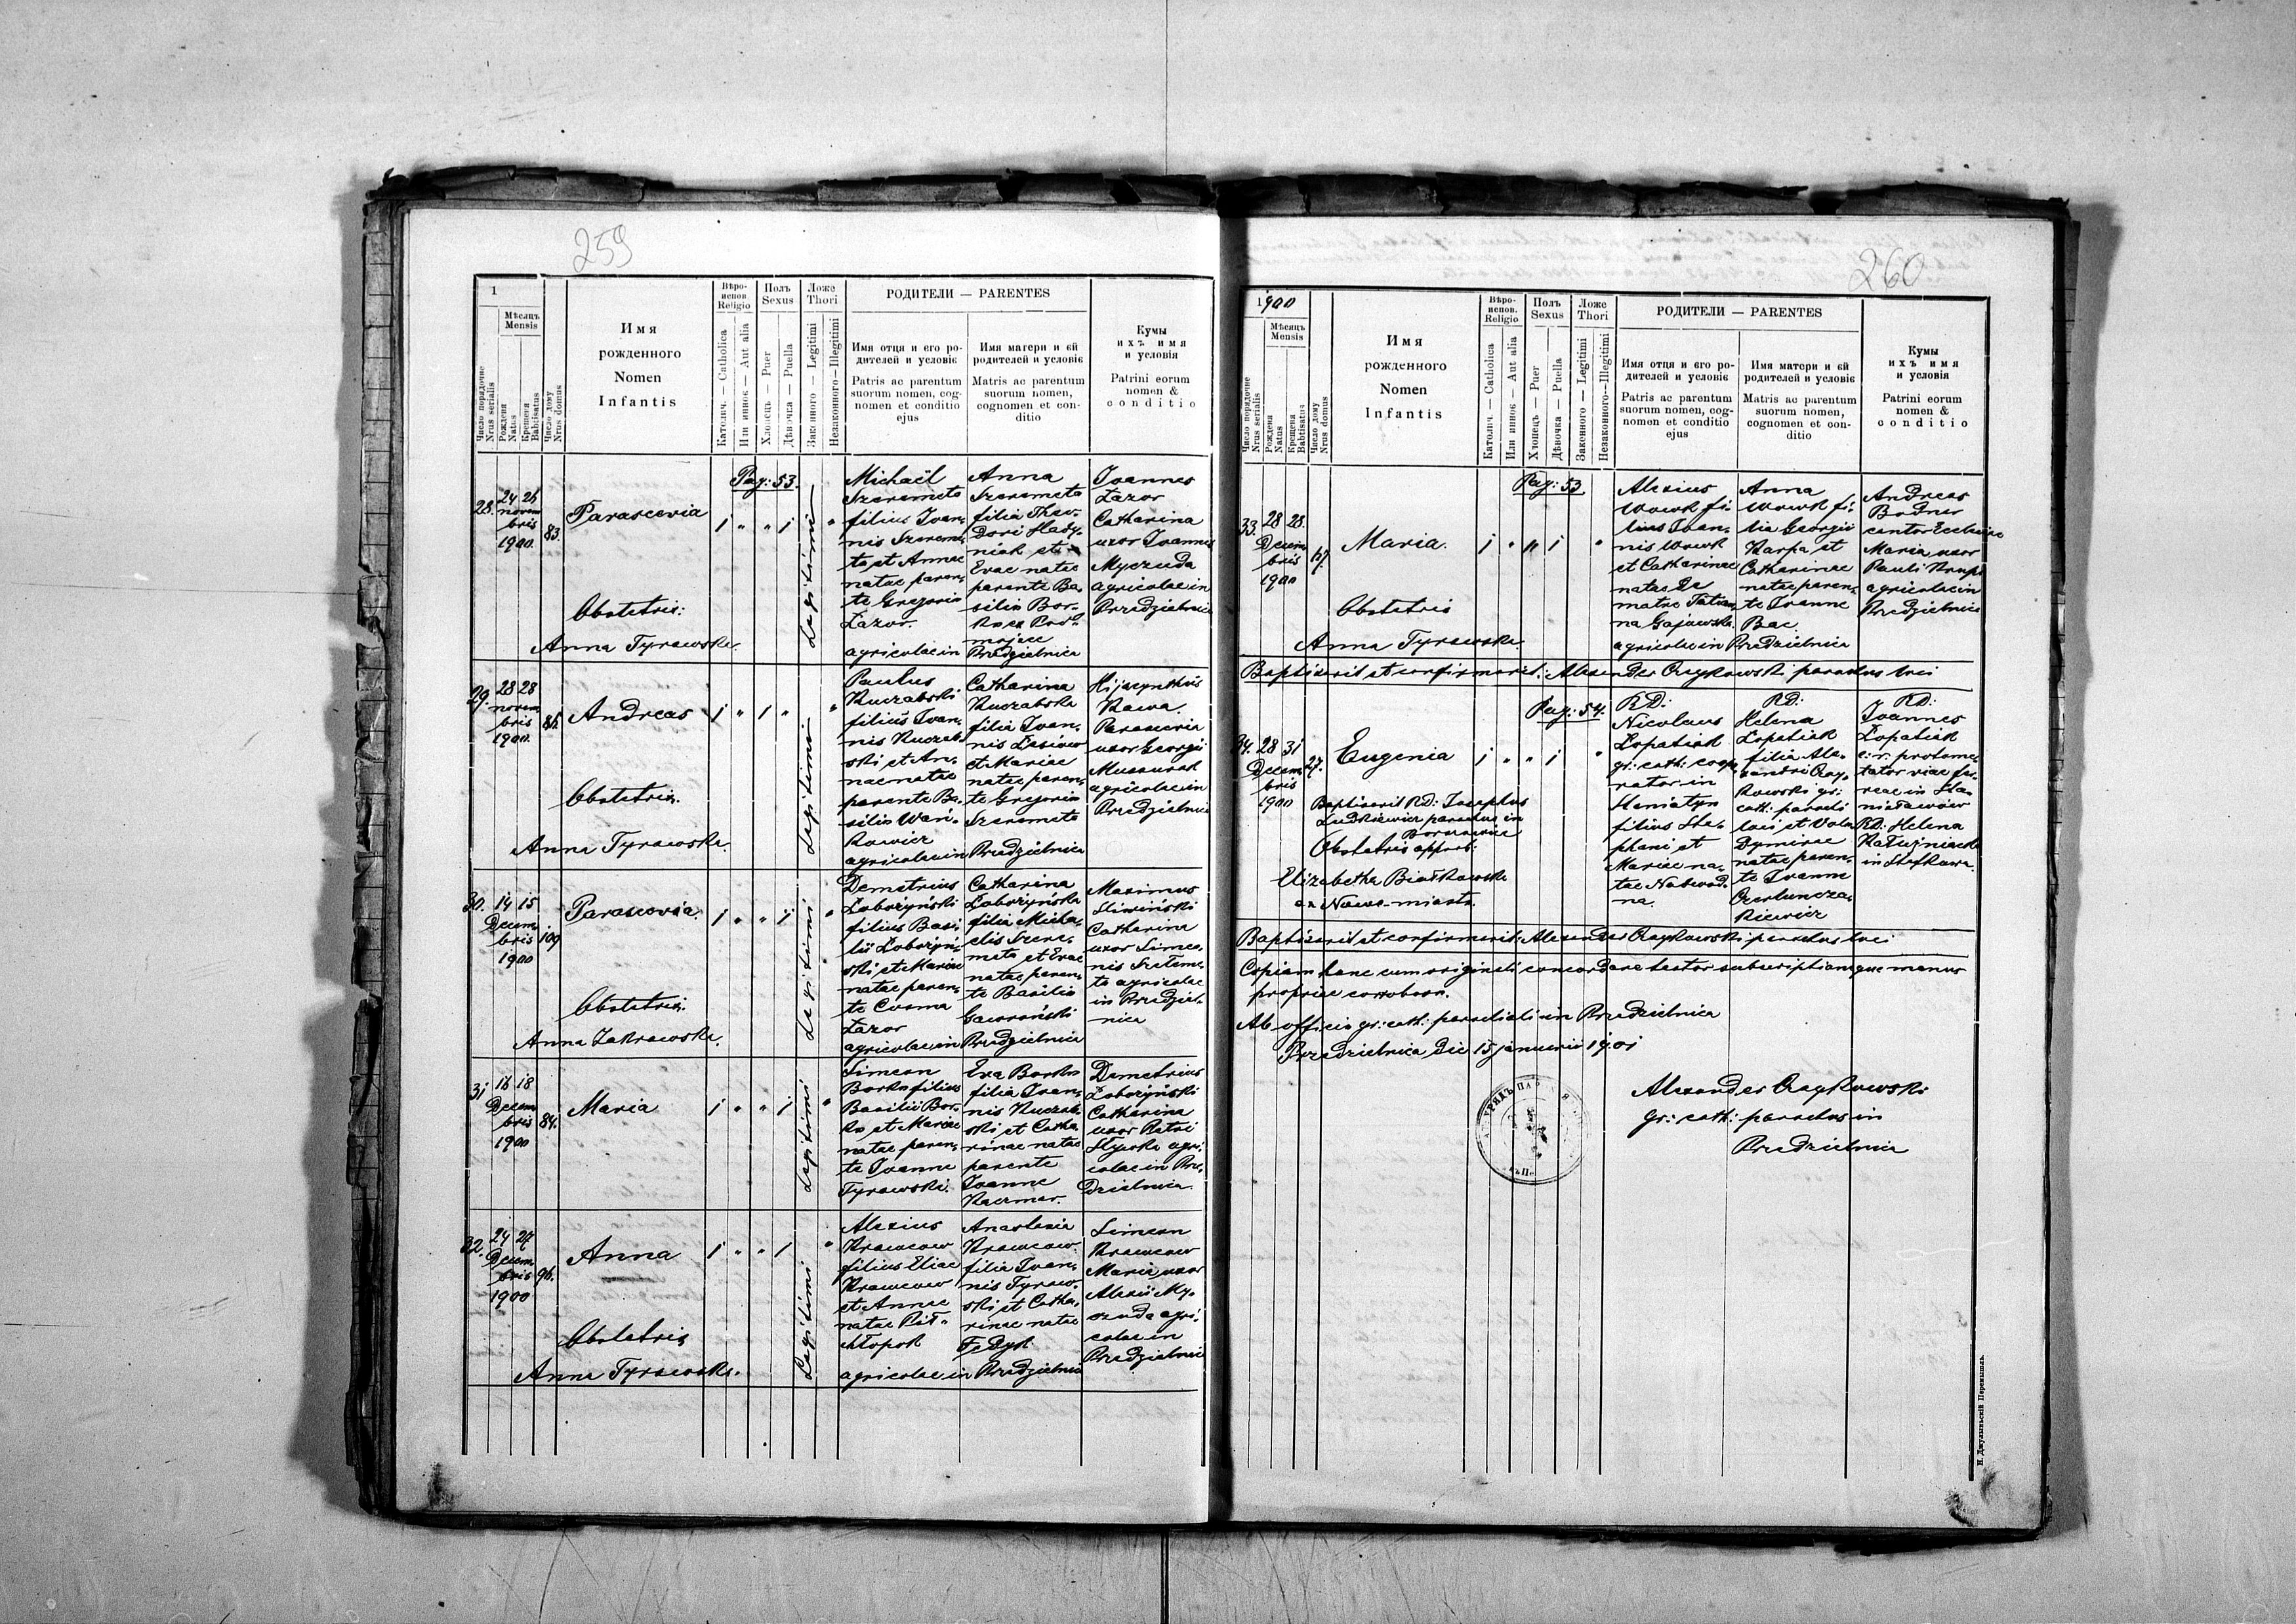 259
1
Мѣсяць
Mensis
Число порядочне
Nrus serialis
Рождена
Natus
Крещена
Babtisatus
Число дому
Nrus domus
Имя
рожденного
Nomen
Infantis
Вѣро-
испов.
Religio
Католич. — Catholica
Или инное — Aut alia
Полъ
Sexus
Хлопець — Puer
Дѣвочка — Puella
Ложе
Thori
Законного — Legitimi
Незаконного — Illegitimi
РОДИТЕЛИ — PARENTES
Имя отця и єго ро-
дителей и условіє
Patris ac parentum
suorum nomen, cog-
nomen et conditio
ejus
Имя матери и єй
родителей и условіє
Matris ac parentum
suorum nomen,
cognomen et con-
ditio
Кумы
ихъ имя
и условія
Patrini eorum
nomen &
conditio
Pag: 53.
28.
24 26
novem
bris
1900.
83.
Parascevia
Obstetrix:
Anna Tyrawska.
Legitimi
Michaël
Szeremeta
filius Ioan-
nis Szereme-
ta et Annae
natae paren-
te Gregorio
Łazor.
agricolae in
Anna
Szeremeta
filia Theo-
dori Hlady-
niak et
Evae natae
parente Ba-
silio Bor-
majee
Przedzielnica
Ioannes
Łazor
Catharina
uxor Ioannis
Myczuda
agricolae in
Przedzielnica
29.
28 28
novem
bris
1900.
86.
Andreas
Obstetrix.
Anna Tyrawska.
Legitimi
Paulus
Kuczabski
filius Ioan-
nis Kuczab-
ski et An-
nae natae
parente Ba-
silio Wań-
kowicz
agricolae in
Catharina
Kuczabska
filia Ioan-
nis Lesiów
et Mariae
natae paren-
te Gregorio
Szeremeta
Przedzielnica
Hijacynthus
Kawa.
Parascevia
uxor Georgii
agricolae in
Przedzielnica
30.
14 15
Decem
bris
1900
109
Parascevia.
Obstetrix.
Anna Zakrawska.
Legitimi
Demetrius
Łobożyński
filius Basi-
lii Łobożyń-
ski et Mariae
natae paren-
te Cosma
Łazor
agricolae in
Catharina
Łobożyńska
filia Micha-
elis Szere-
meta et Evae
natae paren-
te Basilio
Gaworoński
Przedzielnica
Maximus
Sliwiński
Catharina
uxor Simeo-
nis Szereme-
ta agricolae
in Przedziel-
nica
31
16 18
Decem
bris
1900
84.
Maria
Legitimi
Simeon
Borko filius
Basilii Bor-
ko et Mariae
natae paren-
te Ioanne
Tyrawski.
Eva Borko
filia Ioan-
nis Kuczab-
ski et Catha-
rinae natae
parente
Ioanne
Kaczmar.
Demetrius
Łobożyński
Catharina
uxor Petri
agri-
colae in Prze-
dzielnica.
32.
24 27
Decem
bris
1900
96.
Anna
Obstetrix
Anna Tyrawska.
Legitimi
Alexius
Krawcow
filius Eliae
Krawcow
et Annae
natae Pół-
chłopek
agricolae in
Anastasia
Krawcow
filia Ioan-
nis Tyraw-
ski et Catha-
rinae natae
Fedyk
Przedzielnica
Simeon
Krawcow
Maria uxor
Alexii My-
czuda agri-
colae in
Przedzielnica
260
1900
Мѣсяць
Mensis
Число порядочне
Nrus serialis
Рождена
Natus
Крещена
Babtisatus
Число дому
Nrus domus
Имя
рожденного
Nomen
Infantis
Вѣро-
испов.
Religio
Католич. — Catholica
Или инное — Aut alia
Полъ
Sexus
Хлопець — Puer
Дѣвочка — Puella
Ложе
Thori
Законного — Legitimi
Незаконного — Illegitimi
РОДИТЕЛИ — PARENTES
Имя отця и єго ро-
дителей и условіє
Patris ac parentum
suorum nomen, cog-
nomen et conditio
ejus
Имя матери и єй
родителей и условіє
Matris ac parentum
suorum nomen,
cognomen et con-
ditio
Кумы
ихъ имя
и условія
Patrini eorum
nomen &
conditio
Pag: 53
33.
28 28.
Decem
bris
1900
Maria.
Obstetrix
Anna Tyrawska.
Alexius
Wowk fi-
lius Ioan-
nis Wowk
et Catharinae
natae de
matre Tatian-
na Gajewska.
agricolae in
Anna
Wowk fi-
lia Georgii
Karpa et
Catharinae
natae paren-
te Ioanne
Bac.
Przedzielnica
Andreas
Bodnar
cantor Ecclesiae
Maria uxor
Pauli
agricolae in
Przedzielnica
Baptisavit et confirmavit: Alexander Czajkowski parochus loci
Pag: 54.
34.
28 31
Decem
bris
1900
27.
Eugenia
Baptisavit RD: Josephus
Ludkiewicz parochus in
Obstetrix approb:
Elizabetha Białkowska
ex Nowe-miasto.
RD:
Nicolaus
Łopatiak
gr: cath: coope-
rator in
filius Ste-
phani et
Mariae na-
tae
RD:
Helena
Łopatiak
filia Ale-
xandri Czaj-
kowski gr:
cath: parochi
loci et Vola-
Dymirae
natae paren-
te Ioanne
RD:
Ioannes
Łopatiak
viae fer-
reae in Sta-
nisławów
RD: Helena
Kałużniacka
in
Baptisavit et confirmavit: Alexander Czajkowski parochus loci
Copiam hanc cum originali concordare testor subscriptionique manus
propriae corrobor.
Ab officio gr: cath: parochiali in Przedzielnica
Przedzielnica die 15 januarii 1901
Alexander Czajkowski
gr: cath: parochus in
Przedzielnica
Н. Джулынскій Перемышль.